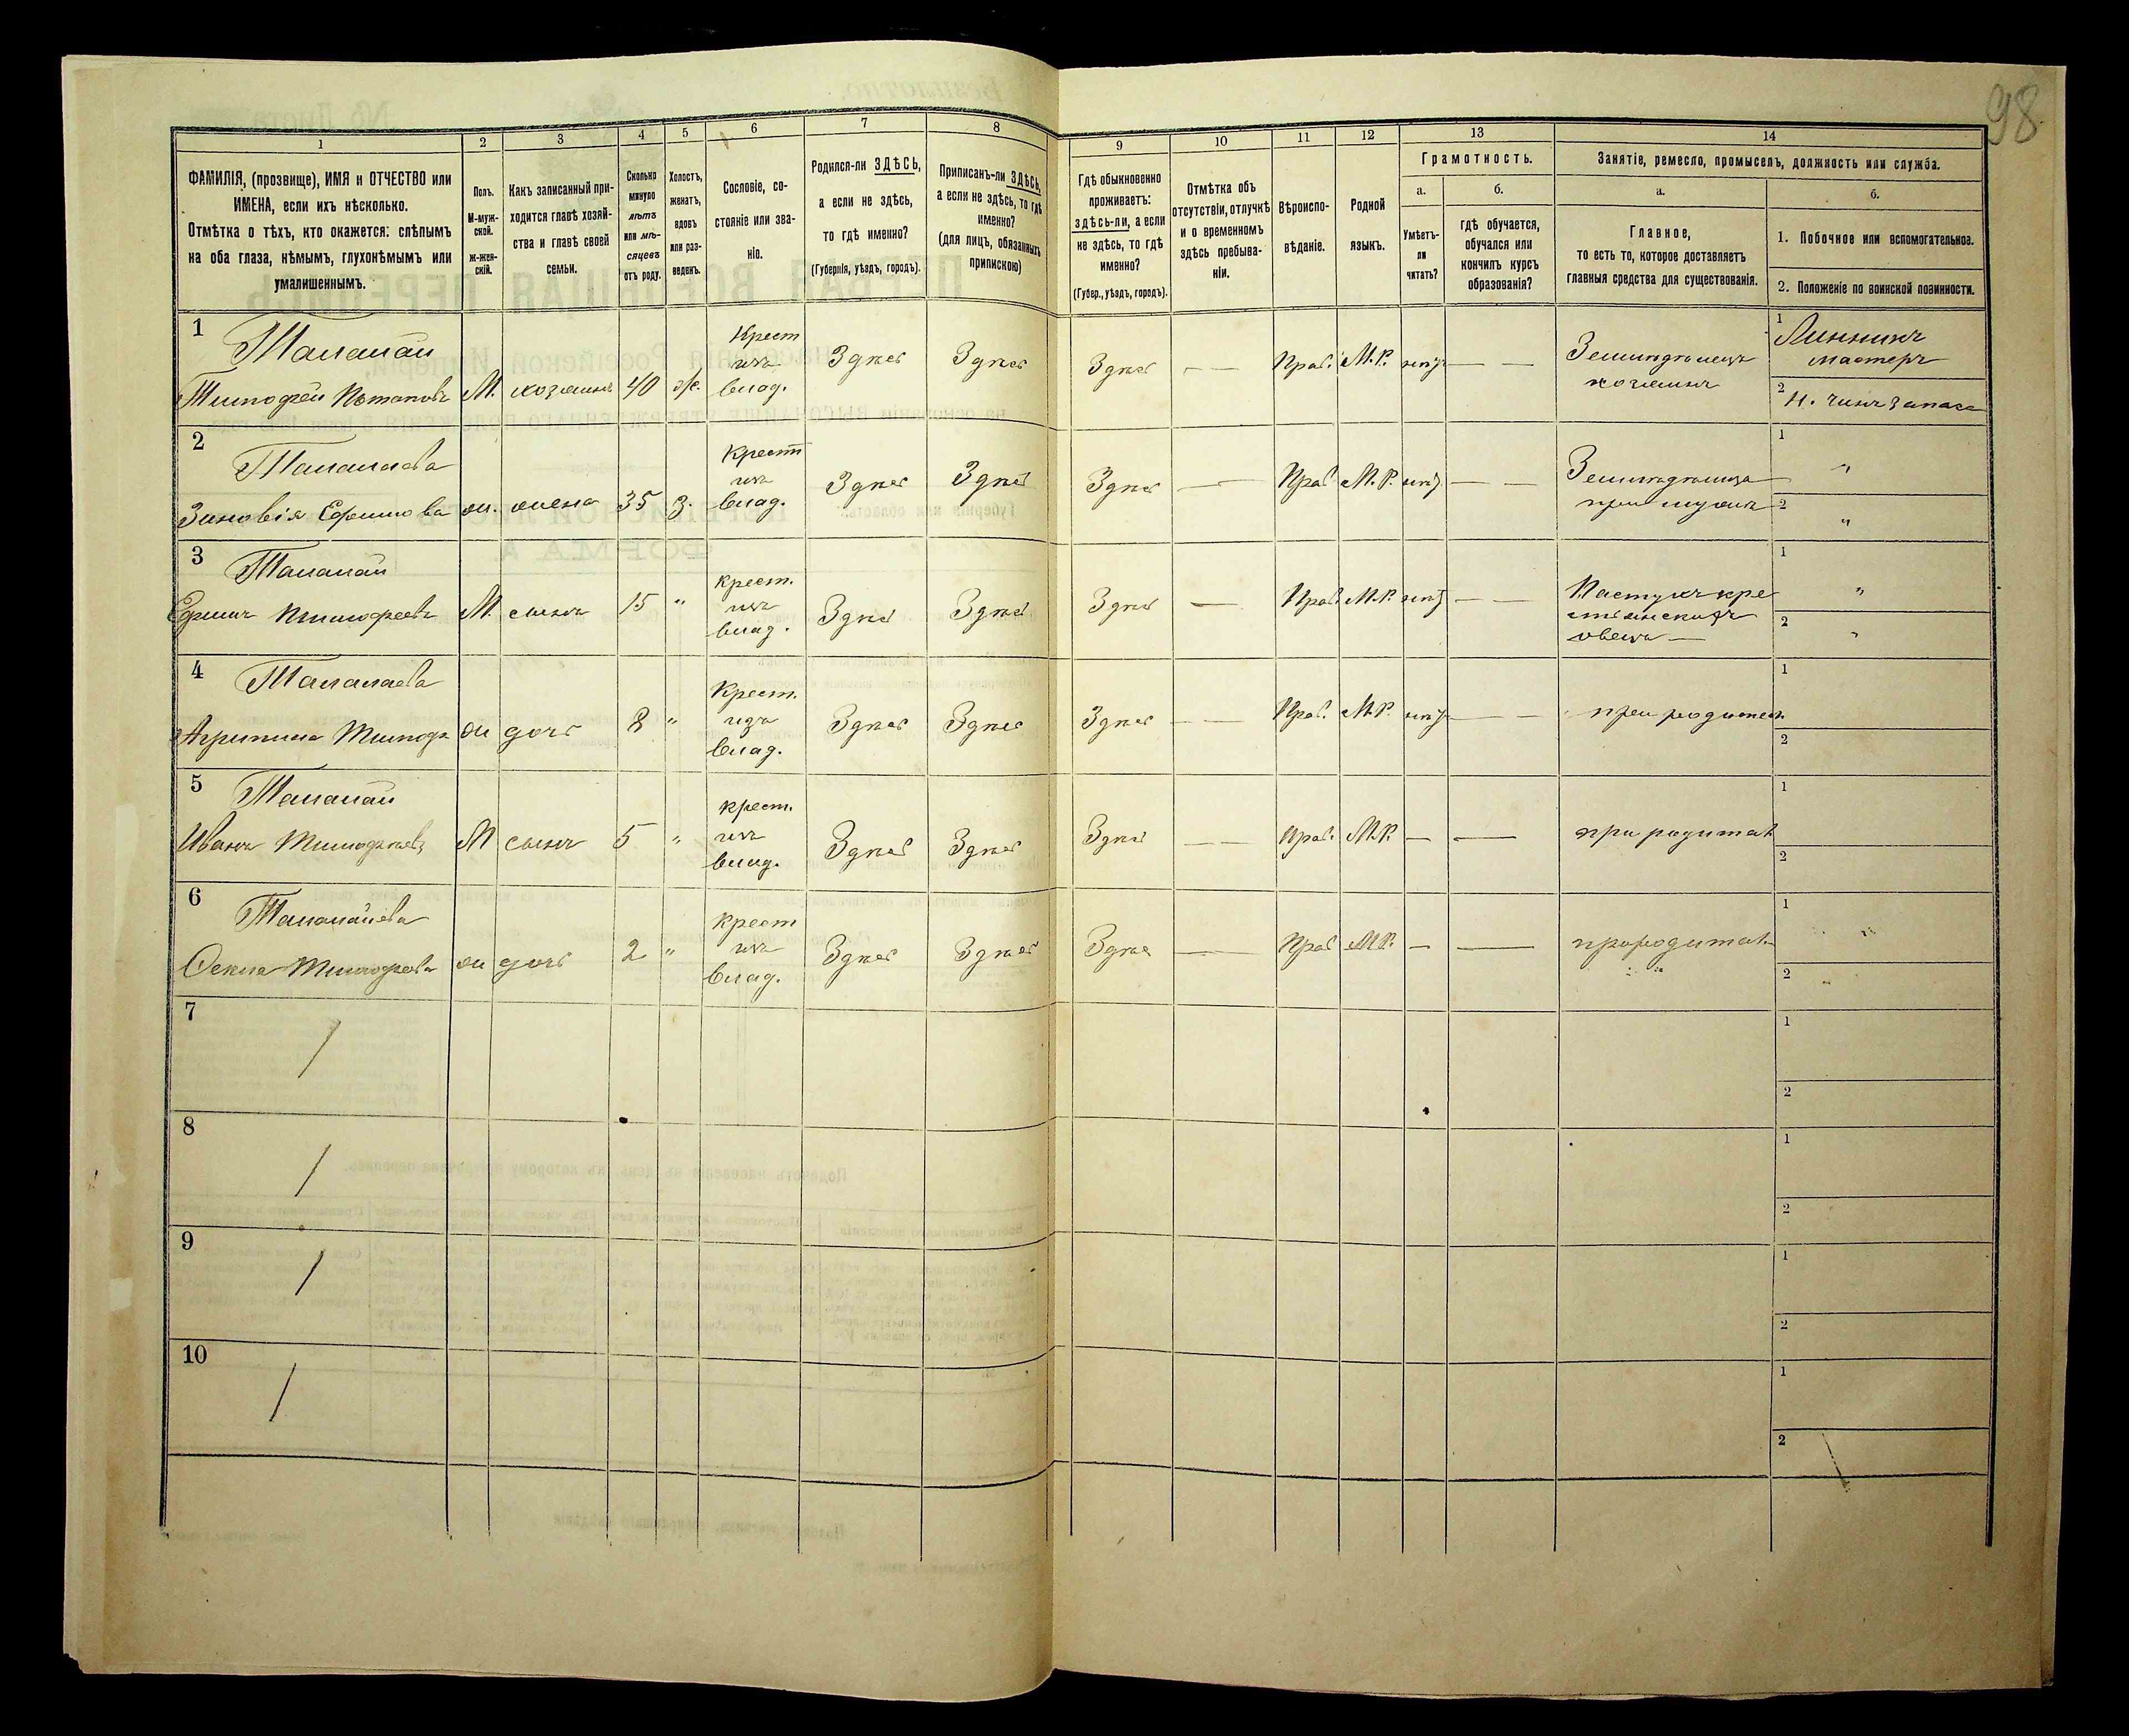 98
1
2
3
4
5
6
7
8
9
10
11
12
13
14
ФАМИЛІЯ, (прозвище), ИМЯ и ОТЧЕСТВО или
ИМЕНА, если ихъ нѣсколько.
Отмѣтка о тѣхъ, кто окажется: слѣпымъ
на оба глаза, нѣмымъ, глухонѣмымъ или
умалишеннымъ.
Полъ.
М-муж-
ской.
Ж-жен-
скій.
Какъ записанный при-
ходится главѣ хозяй-
ства и главѣ своей
семьи.
Сколько
минуло
лѣтъ
или мѣ-
сяцевъ
отъ роду.
Холостъ,
женатъ,
вдовъ
или раз-
веденъ.
Сословіе, со-
стояніе или зва-
ніе.
Родился-ли ЗДѢСЬ,
а если не здѣсь,
то гдѣ именно?
(Губернія, уѣздъ, городъ).
Приписанъ-ли ЗДѢСЬ,
а если не здѣсь, то гдѣ
именно?
(для лицъ, обязанныхъ
припискою)
Гдѣ обыкновенно
проживаетъ:
здѣсь-ли, а если
не здѣсь, то гдѣ
именно?
(Губер., уѣздъ, городъ).
Отмѣтка объ
отсутствіи, отлучкѣ
и о временномъ
здѣсь пребыва-
ніи.
Вѣроиспо-
вѣданіе.
Родной
языкъ.
Грамотность.
а.
Умѣетъ-
ли
читать?
б.
гдѣ обучается,
обучался или
кончилъ курсъ
образованія?
Занятіе, ремесло, промыселъ, должность или служба.
а.
Главное,
то есть то, которое доставляетъ
главныя средства для существованія.
б.
1. Побочное или вспомогательное.
2. Положеніе по воинской повинности.
1
Талалай
Тимофей Потаповъ
М.
хозяинъ
40
ж.
Крест
изъ
влад.
Здѣсь
Здѣсь
Здѣсь
— —
Прав.
М.Р.
нѣтъ
— —
Земледѣлецъ
хозяинъ
1
мастеръ
2
Н. чинъ запаса
2
Талалаева
Зиновія Ефимова
ж.
жена
35
З.
Крест
изъ
влад.
Здѣсь
Здѣсь
Здѣсь
—
Прав
М.Р.
нѣт
— —
Земледѣлица
при мужѣ
1
"
2
"
3
Талалай
Ефимъ Тимофеевъ
М
сынъ
15
"
крест.
изъ
влад.
Здѣсь
Здѣсь
Здѣсь
—
Прав.
М.Р.
нѣт
— —
Пастухъ кре
стьянскихъ
овецъ —
1
"
2
"
4
Талалаева
Агрипина Тимоф
ж
дочь
8
"
Крест.
изъ
влад.
Здѣсь
Здѣсь
Здѣсь
— —
Прав.
М.Р.
нѣт
— —
при родител
1
2
5
Талалай
Иванъ Тимофѣевъ
М
сынъ
5
"
крест.
изъ
влад.
Здѣсь
Здѣсь
Здѣсь
— —
Прав.
М.Р.
—
—
при родител
1
2
6
Талалайева
Текла Тимофеева
ж
дочь
2
"
Крест
изъ
влад.
Здѣсь
Здѣсь
Здѣсь
—
Прав
М.Р.
—
—
при родител.
1
2
7
1
2
8
1
2
9
1
2
10
1
2